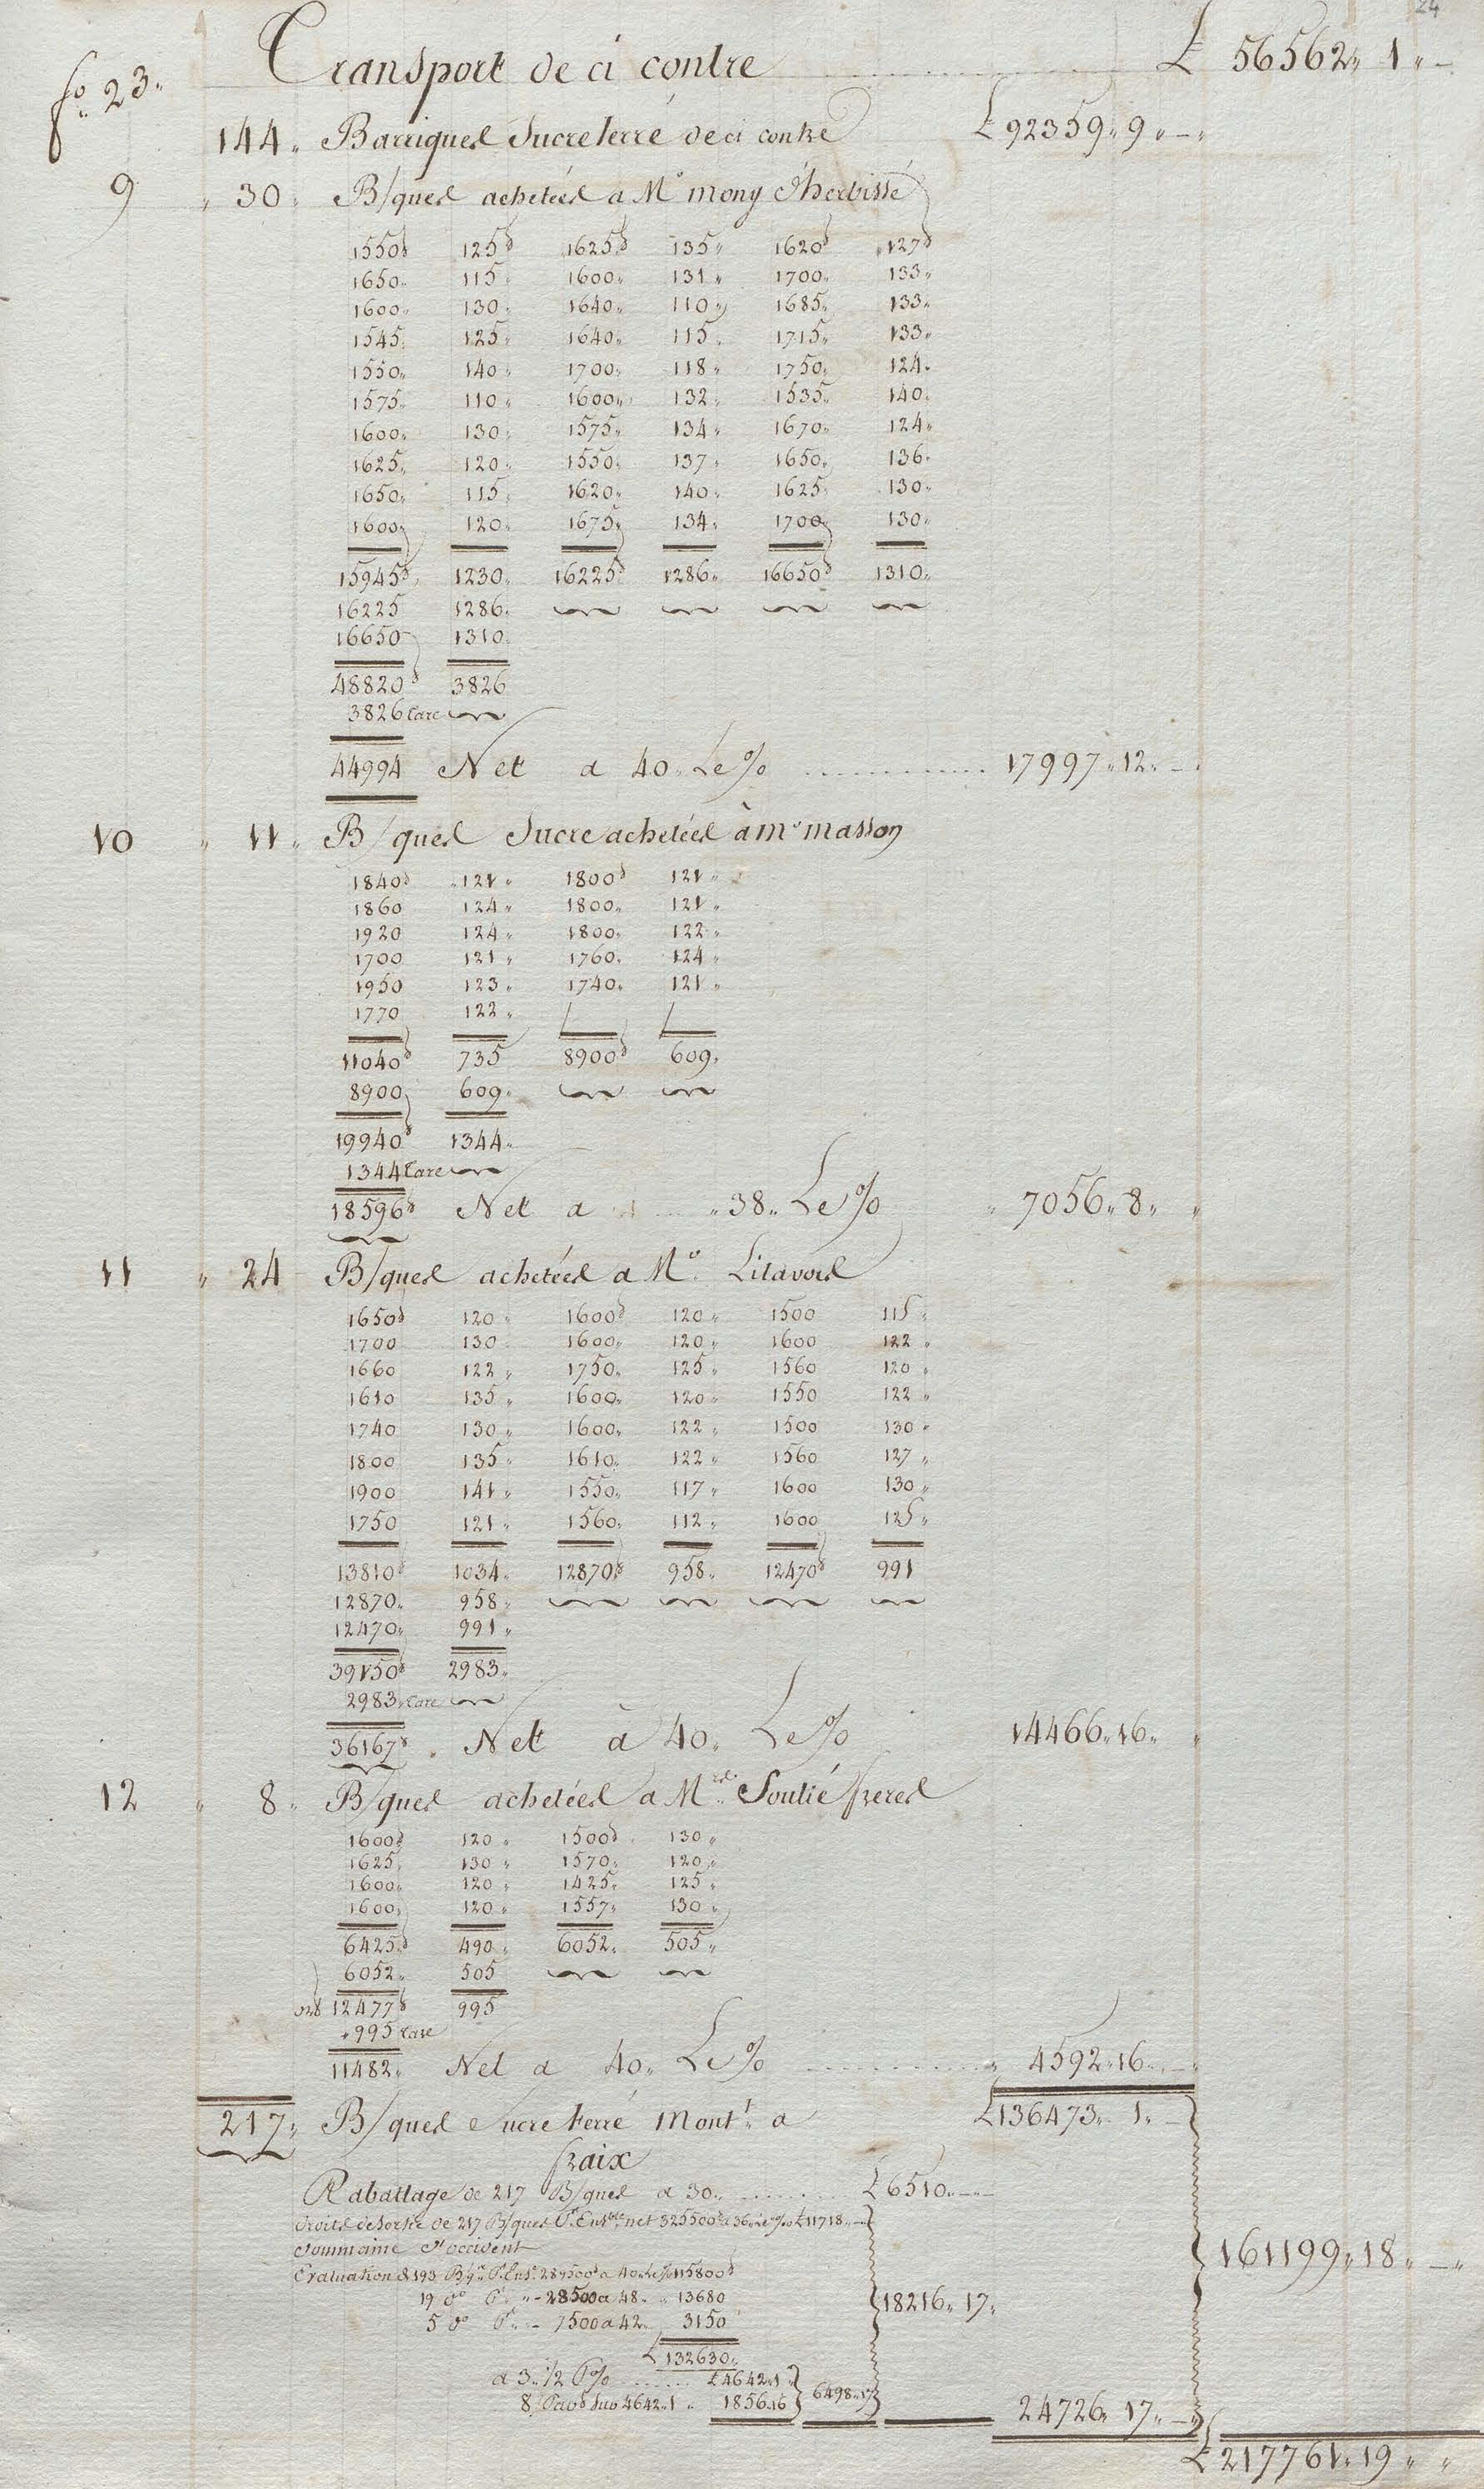 24
fo. 23. Transport de ci contre £ 56562,, 1,, —
144,, Barriques Sucre terré de ci contre £ 92359,, 9,, —
9 ,, 30,, B/ques achetées a Mr. mony d'herbissé
1550 125 1625 135,, 1620 127
1650,, 115,, 1600,, 131,, 1700,, 133,,
1600,, 130,, 1640,, 110,, 1685,, 133,,
1545,, 125,, 1640,, 115,, 1715,, 133,,
1550,, 140,, 1700,, 118,, 1750,, 124,,
1575,, 110,, 1600,, 132,, 1535,, 140,,
1600,, 130,, 1575,, 134,, 1670,, 124,,
1625,, 120,, 1550,, 137,, 1650,, 136,,
1650,, 115,, 1620,, 140,, 1625,, 130,,
1600,, 120,, 1675,, 134,, 1700,, 130,,
15945 1230,, 16225 1286,, 16650 1310,,
16225 1286,,
16650 1310,,
48820 3826
3826 tare
44994 Net a 40,, Le % 17997,, 12,, —
10 ,, 11,, B/ques Sucre achetées à Mr. masson
1840 121,, 1800 121,,
1860 124,, 1800,, 121,,
1920 124,, 1800,, 122,,
1700 121,, 1760,, 124,,
1950 123,, 1740,, 121,,
1770 122,,
11040 735 8900 609,,
8900 609,,
19940 1344,,
1344 tare
18596 Net a 38,, Le % ,, 7056,, 8,, ,,
11 ,, 24 B/ques achetées a Mr. Litavois
1650 120,, 1600 120,, 1500 115,,
1700 130 1600,, 120,, 1600 122,,
1660 122,, 1750,, 125,, 1560 120,,
1610 135,, 1600,, 120,, 1550 122,,
1740 130,, 1600,, 122,, 1500 130,,
1800 135,, 1610,, 122,, 1560 127,,
1900 141,, 1550,, 117,, 1600 130,,
1750 121,, 1560,, 112,, 1600 125,,
13810 1034,, 12870 958,, 12470 991
12870,, 958,,
12470,, 991,,
39150 2983,,
2983 tare
36167 Net à 40,, Le % 14466,, 16,, ,,
12 ,, 8,, B/ques achetées a Mrs. Soulié freres
1600 120,, 1500 130,,
1625,, 130,, 1570,, 120,,
1600,, 120,, 1425,, 125,,
1600,, 120,, 1557,, 130,,
6425 490,, 6052,, 505,,
6052,, 505
12477 995
995 tare
11482,, Net a 40,, Le % ,, 4592,, 16,, —
217,, B/ques Sucre terré Montt. a £ 136473,, 1,, —
fraix
Rabattage de 217 B/ques a 30,, £ 6510,, —
droits de sortie de 217 B/ques Pt. Ensble. net 325500 a 36,, Le %o £ 11718,, —
doummaine d'occident 161199,, 18,, —
Evaluation d 193 B/qs Pt. Ens. 289500 a 40,, Le % 115800
19 do Pt. ,, – 28500 a 48,, ,, 13680 18216,, 17,,
5 do Pt. ,, – 7500 a 42,, 3150
£ 132630,,
a 3,, 1/2 P% £ 4642,, 1,,
8 s. Sur 4642,, 1 ,, 1856,, 16 6498,, 17 24726,, 17,, —
£ 217761,, 19,, ,,